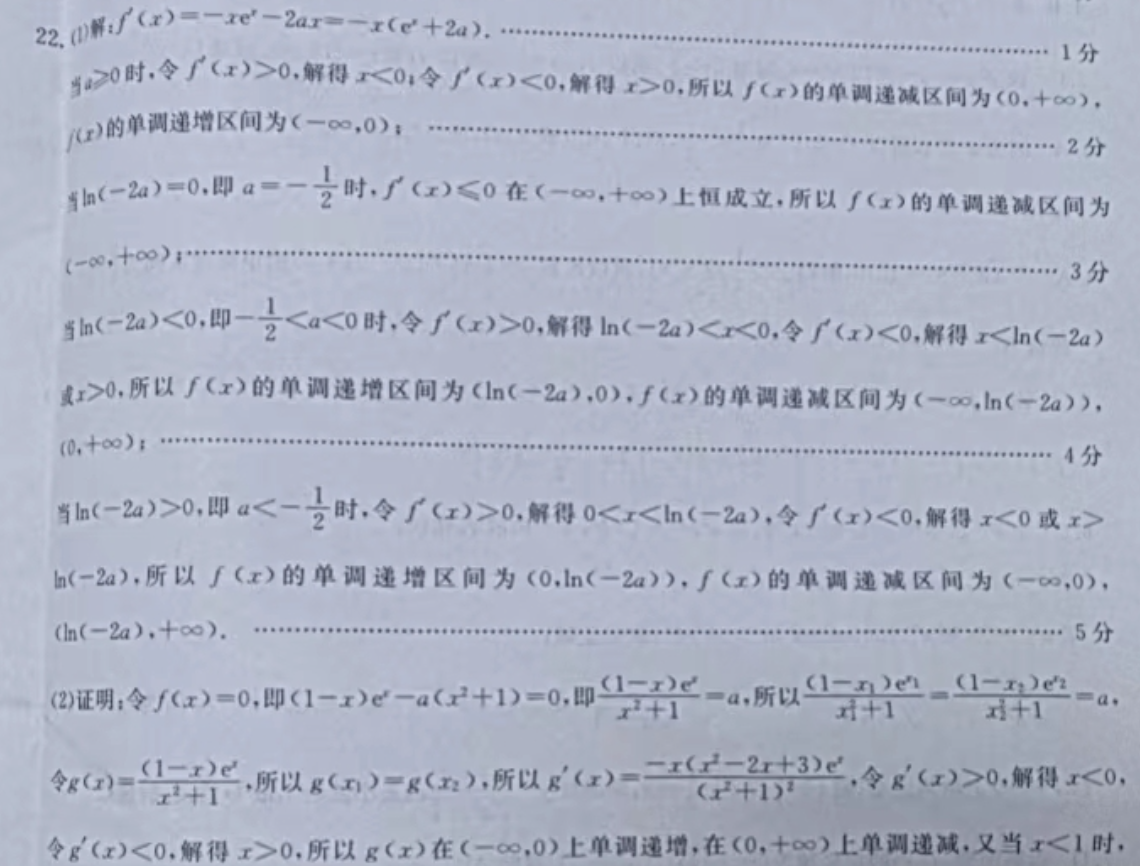 22. (1)解:f′(x)=-xeˣ-2ax=-x(eˣ+2a). …………………… 1分
当a≥0时,令f′(x)>0,解得x<0;令f′(x)<0,解得x>0,所以f(x)的单调递减区间为(0,+∞),
f(x)的单调递增区间为(-∞,0); …………………… 2分
当ln(-2a)=0,即a=-1/2时,f′(x)≤0在(-∞,+∞)上恒成立,所以f(x)的单调递减区间为
(-∞,+∞); …………………… 3分
当ln(-2a)<0,即-1/2<a<0时,令f′(x)>0,解得ln(-2a)<x<0,令f′(x)<0,解得x<ln(-2a)
或x>0,所以f(x)的单调递增区间为(ln(-2a),0),f(x)的单调递减区间为(-∞,ln(-2a)),
(0,+∞); …………………… 4分
当ln(-2a)>0,即a<-1/2时,令f′(x)>0,解得0<x<ln(-2a),令f′(x)<0,解得x<0或x>
ln(-2a),所以f(x)的单调递增区间为(0,ln(-2a)),f(x)的单调递减区间为(-∞,0),
(ln(-2a),+∞). …………………… 5分
(2)证明:令f(x)=0,即(1-x)eˣ-a(x²+1)=0,即(1-x)eˣ/(x²+1)=a,所以(1-x₁)e^{x₁}/(x₁²+1)=(1-x₂)e^{x₂}/(x₂²+1)=a,
令g(x)=(1-x)eˣ/(x²+1),所以g(x₁)=g(x₂),所以g′(x)=-x(x²-2x+3)eˣ/(x²+1)²,令g′(x)>0,解得x<0,
令g′(x)<0,解得x>0,所以g(x)在(-∞,0)上单调递增,在(0,+∞)上单调递减,又当x<1时,